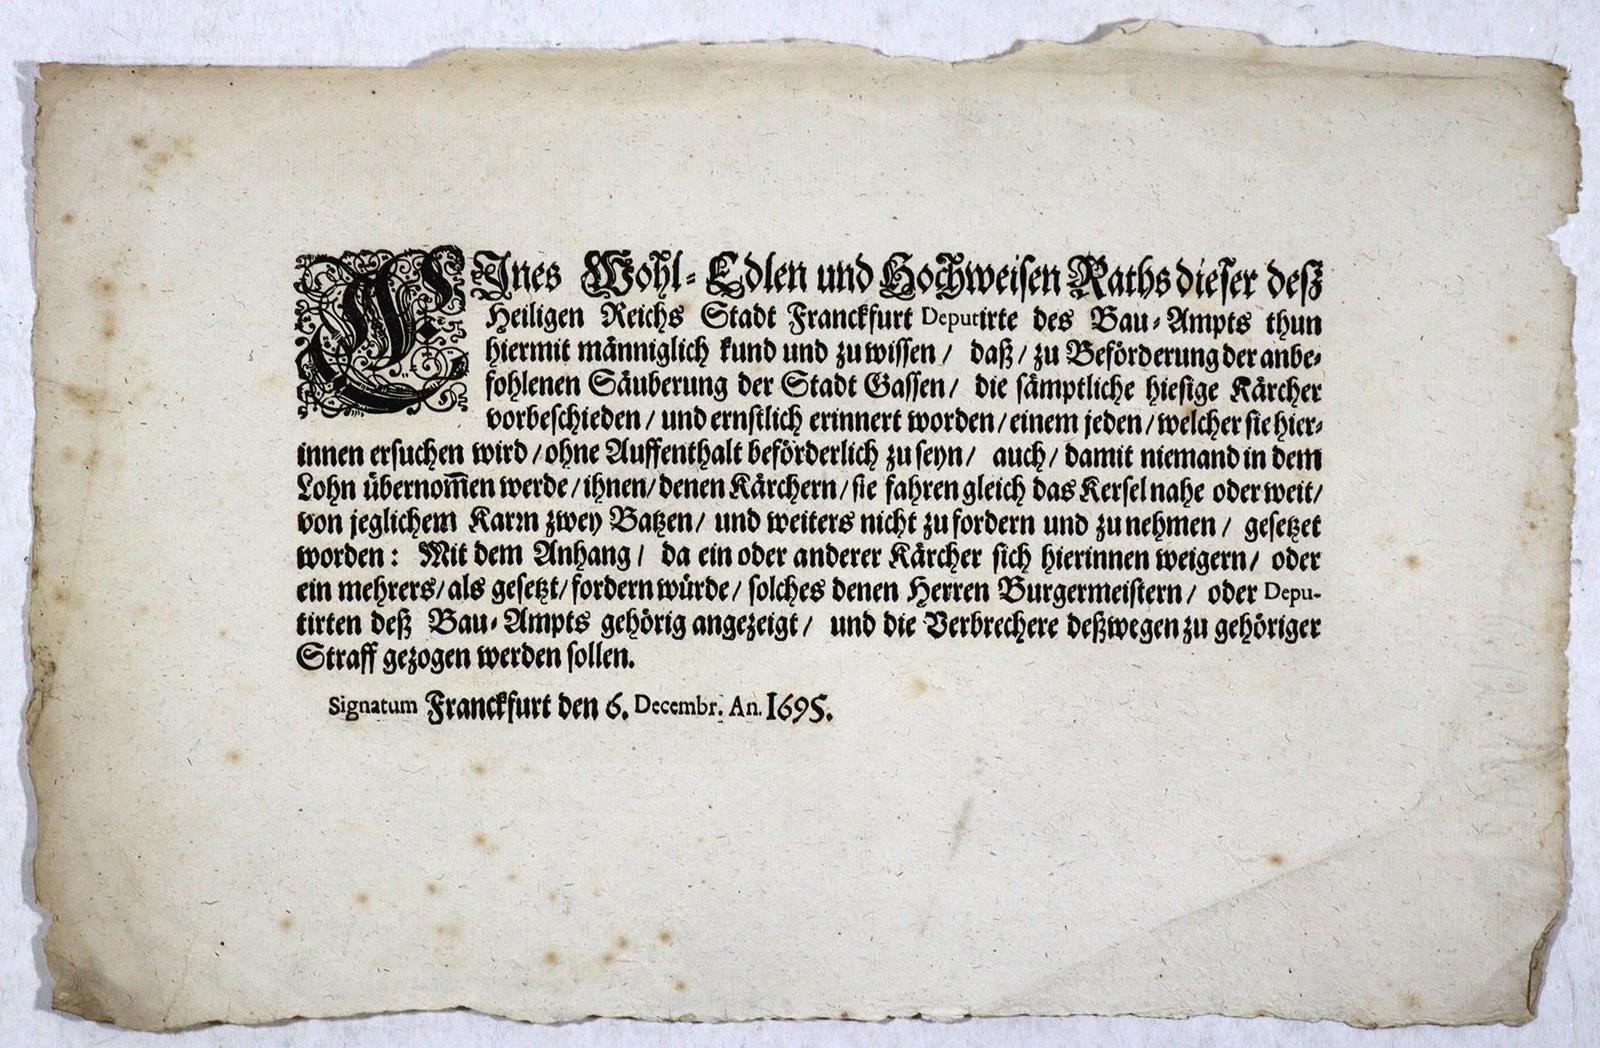 EInes Wohl-Edlen und Hochweisen Raths dieser deß
Heiligen Reichs Stadt Franckfurt Deputirte des Bau-Ampts thun
hiermit männiglich kund und zu wissen / daß / zu Beförderung der anbe-
fohlenen Säuberung der Stadt Gassen / die sämptliche hiesige Kärcher
vorbeschieden / und ernstlich erinnert worden / einem jeden / welcher sie hier-
innen ersuchen wird / ohne Auffenthalt beförderlich zu seyn / auch / damit niemand in dem
Lohn übernom̃en werde / ihnen / denen Kärchern / sie fahren gleich das Kersel nahe oder weit /
von jeglichem Karrn zwey Batzen / und weiters nicht zu fordern und zu nehmen / gesetzet
worden: Mit dem Anhang / da ein oder anderer Kärcher sich hierinnen weigern / oder
ein mehrers / als gesetzt / fordern würde / solches denen Herren Burgermeistern / oder Depu-
tirten deß Bau-Ampts gehörig angezeigt / und die Verbrechere deßwegen zu gehöriger
Straff gezogen werden sollen.
Signatum Franckfurt den 6. Decembr. An. 1695.